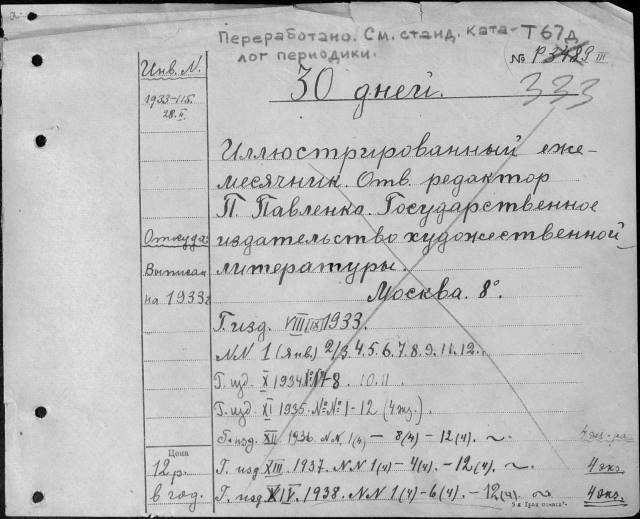 Переработано. См. станд. ката- Т67д
лог периодики.
№ Р3483 III
333
Инв. N.
1933-115.
28.II.
30 дней.
Иллюстрированный еже-
месячник. Отв. редактор
П. Павленко. Государственное
Откуда: издательство художественной
Выписан литературы.
на 1933г Москва. 8°.
Г. изд. VIII (IX) 1933.
NN 1 (Янв.) 2/3. 4. 5. 6. 7. 8. 9. 11. 12.
Г. изд. X 1934. 7-8. 10. 11
Г. изд. XI 1935. №№ 1-12 (4 экз.).
Г. изд. XII. 1936. NN. 1(4) — 8(4) — 12(4). ~ 4 экз-ра
Цена
12 р. Г. изд. XIII. 1937. NN 1(4) — 4(4). — 12(4). ~ 4 экз.
в год. Г. изд. XIV. 1938. NN 1(4) - 6(4). — 12(4). ~ 4 экз.